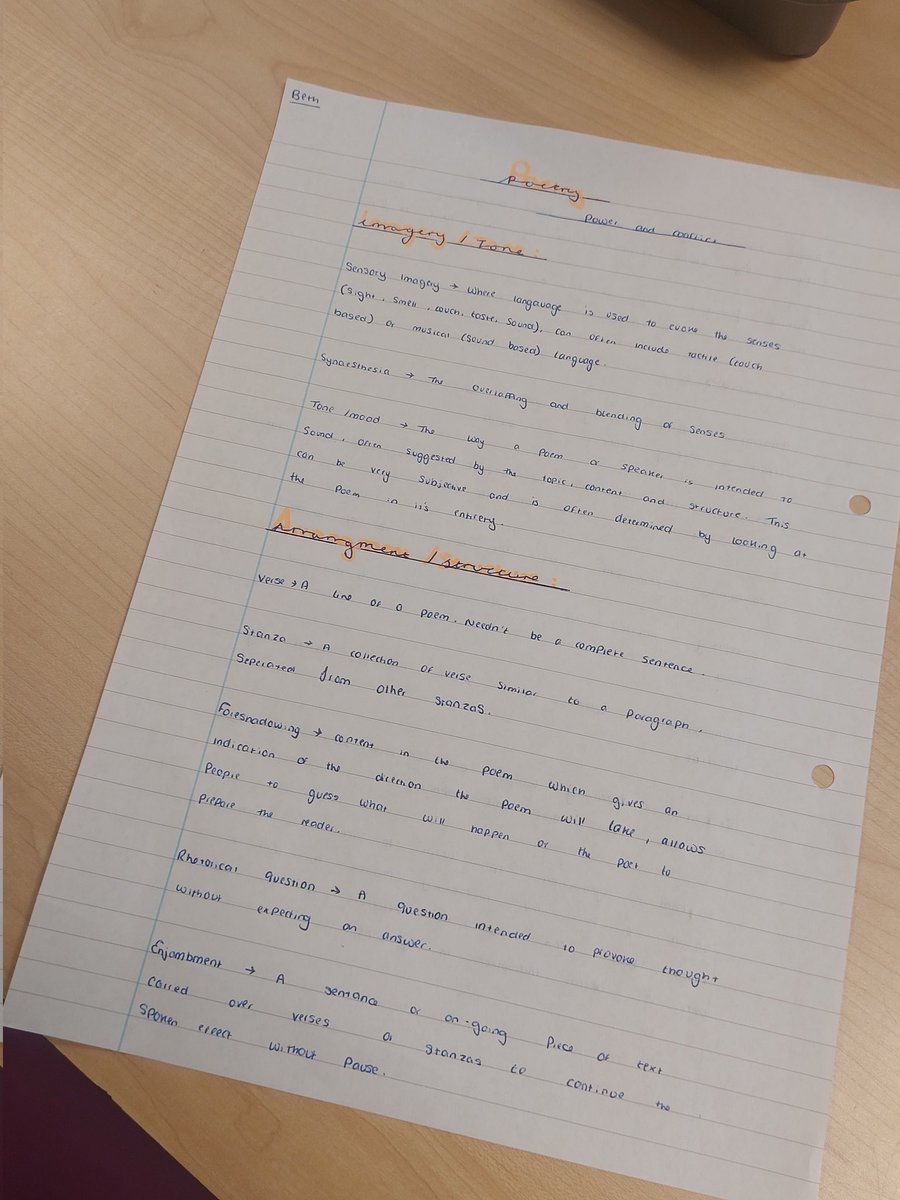 Beth
Poetry
Power and conflict
Imagery / Tone :
Sensory imagery → Where langauage is used to evoke the senses
(sight, smell, touch, taste, sound), can often include tactile (touch
based) or musical (sound based) language.
Synaesthesia → The overlapping and blending of senses
Tone /mood → The way a poem or speaker is intended to
sound, often suggested by the topic, content and structure. This
can be very subjective and is often determined by looking at
the poem in it's entirety.
Arrangment / structure :
Verse → A line of a poem. Needn't be a complete sentence.
Stanza → A collection of verse similar to a paragraph.
Seperated from other stanzas.
Foreshadowing → content in the poem which gives an
indication of the direction the poem will take, allows
people to guess what will happen or the poet to
prepare the reader.
Rhetorical question → A question intended to provoke thought
without expecting an answer.
Enjambment → A sentance or on-going piece of text
carried over verses or stanzas to continue the
spoken effect without pause.